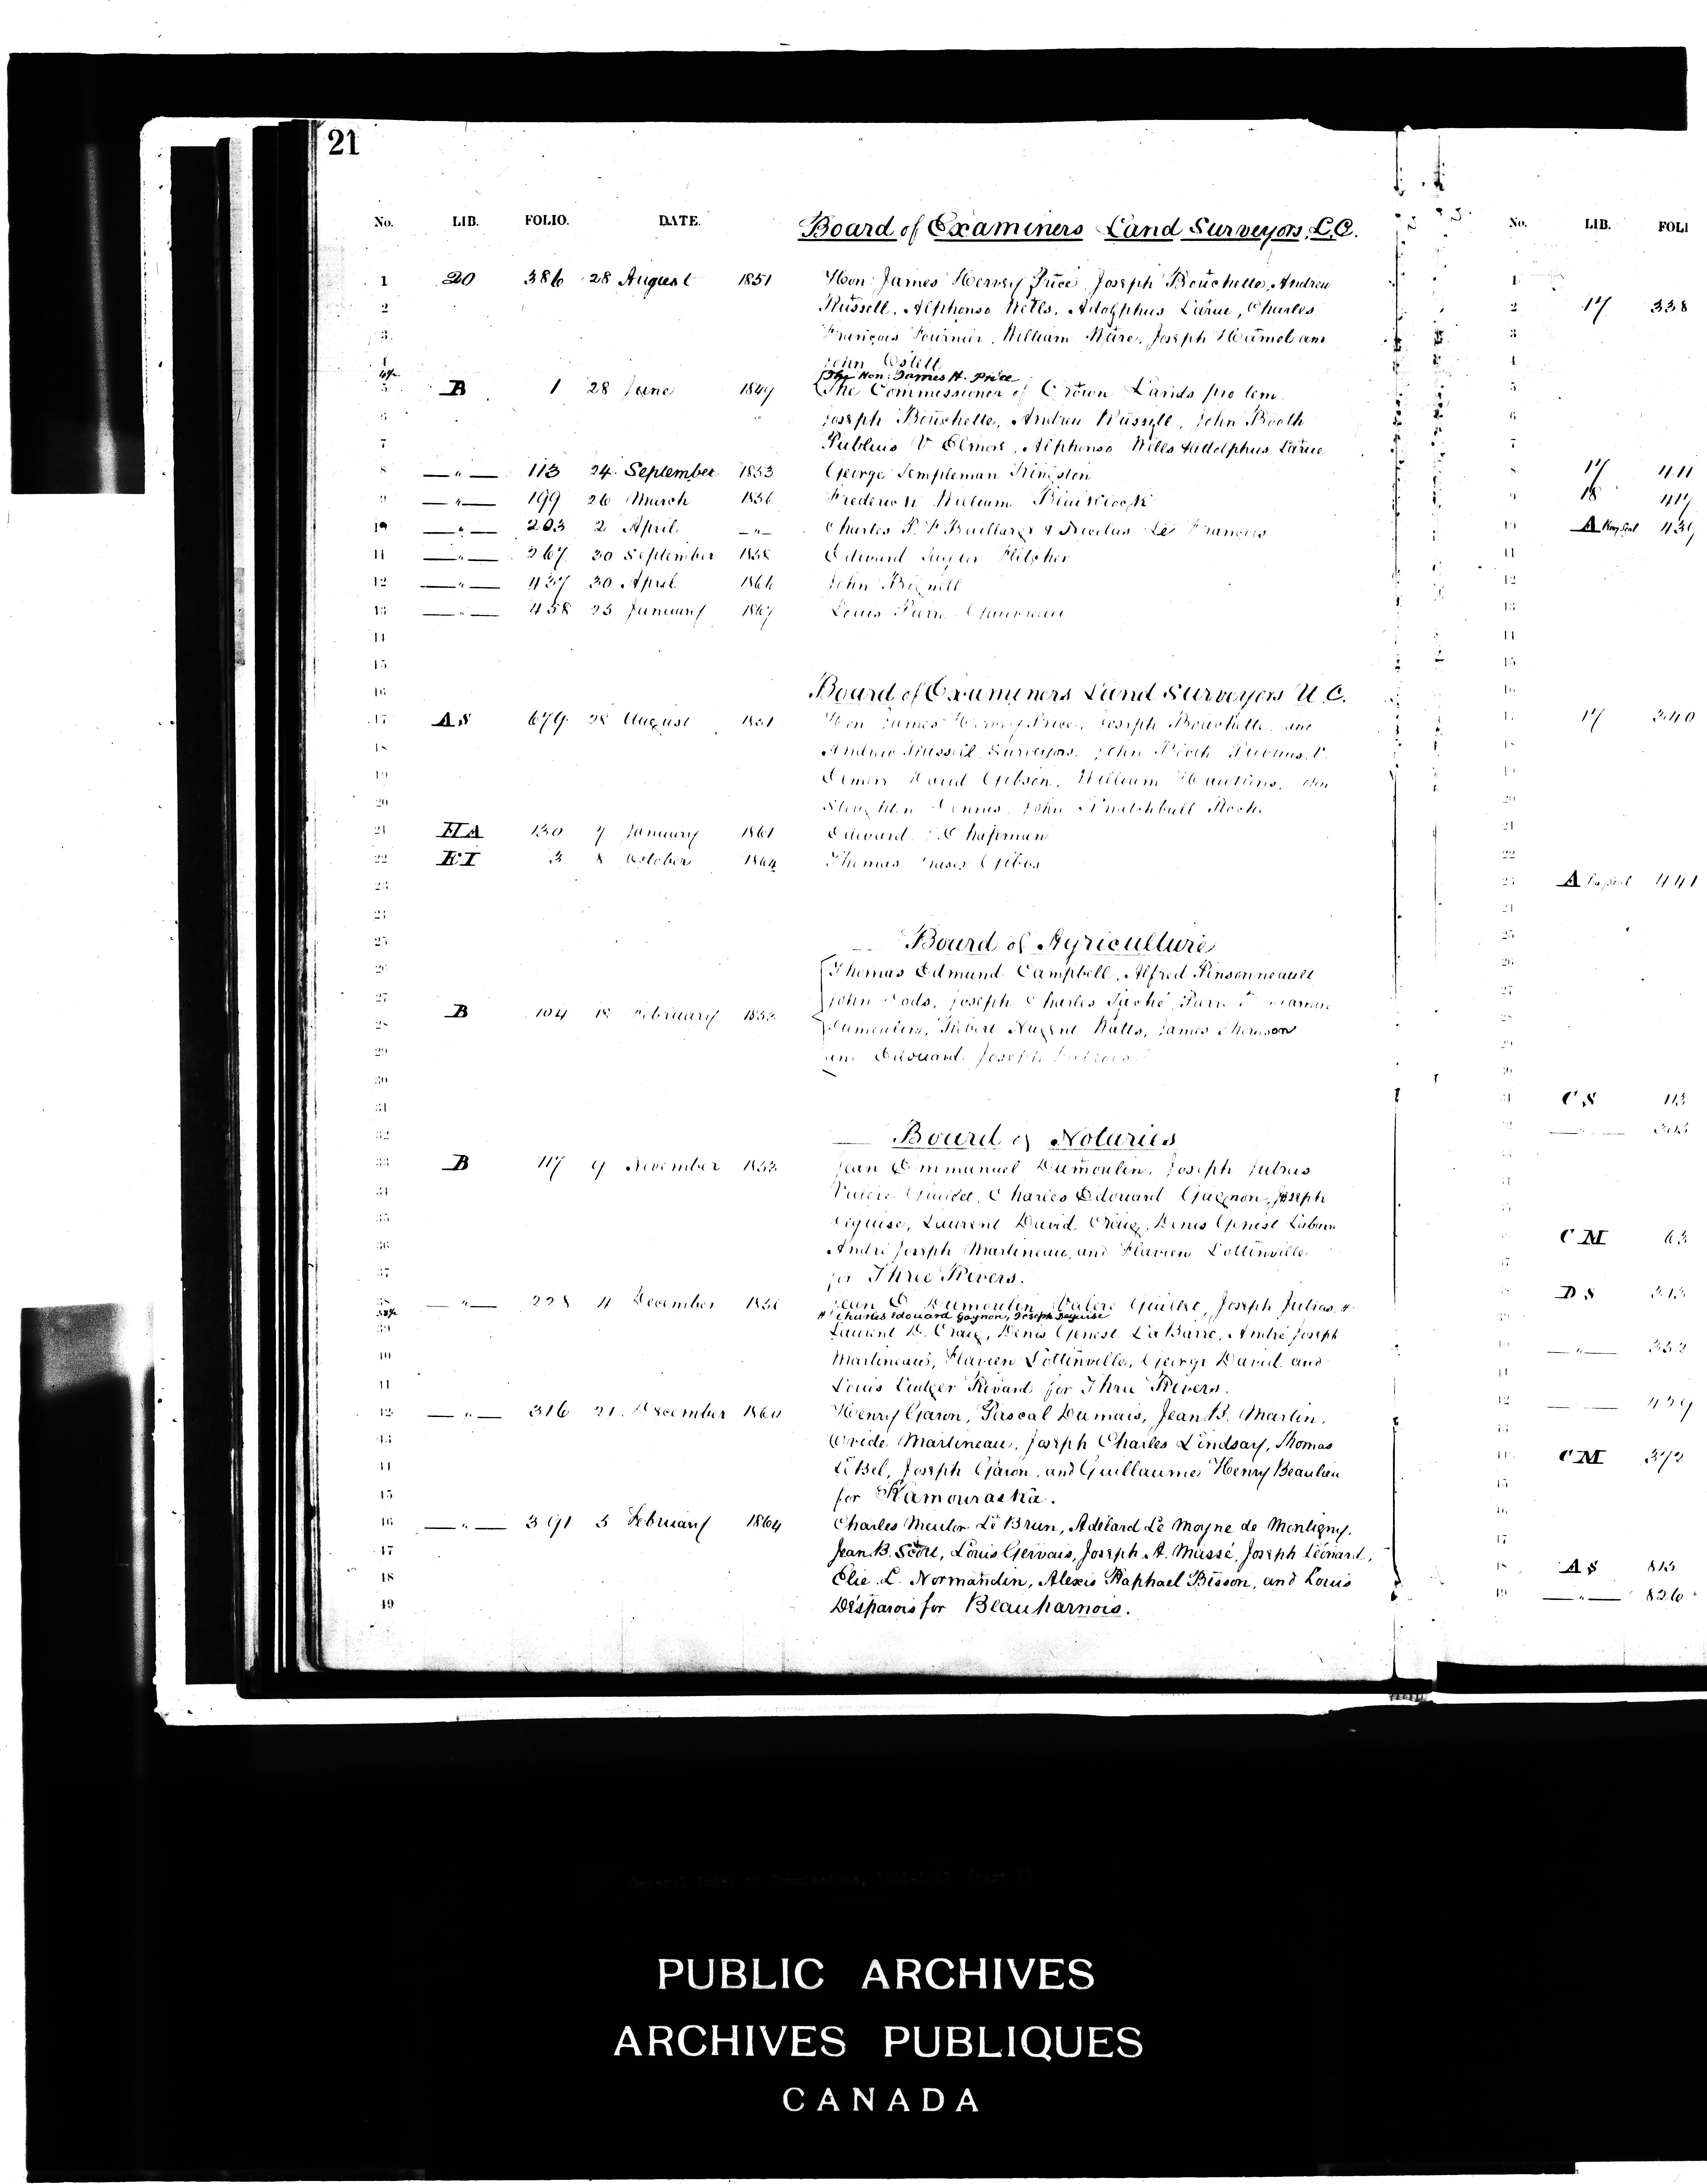 21
No. LIB. FOLIO. DATE. Board of Examiners Land Surveyors, L.C.
1 20 386 28 August 1851 Hon. James Hervey Price, Joseph Bouchette, Andrew
2 Russell, Alphonso Wells, Adolphus Larue, Charles
3 François Fournier, William Ware, Joseph Hamel and
4 John Ostell
4½ The Hon: James H. Price
5 B 1 28 June 1849 The Commissioner of Crown Lands pro tem
6 Joseph Bouchette, Andrew Russell, John Booth
7 Publius V Elmore, Alphonso Wells & Adolphus Larue
8 —"— 113 24 September 1853 George Templeman Kingston
9 —"— 199 26 March Frederick William Blaiklock
10 —"— 203 2 April —"— Charles P. F Baillargé & Nicolas Le François
11 —"— 267 30 September 1858 Edward Taylor Fletcher
12 —"— 437 30 April John Bignell
13 —"— 458 25 January 1867 Louis Pierre Gauvreau
14
15
16 Board of Examiners Land Surveyors U.C.
17 AS 679 28 August 1851 Hon James Hervey Price, Joseph Bouchette, and
18 Andrew Russell, Surveyors, John Booth Publius V.
19 Elmore David Gibson, William Hawkins, John
20 Stoughton Dennis, John Knatchbull Roche
21 HA 130 7 January 1861 Edward J. Chapman
22 EI 3 8 October 1864 Thomas Fraser Gibbs
23
24
25 Board of Agriculture
26 Thomas Edmund Campbell, Alfred Pinsonneault
27 John Dods, Joseph Charles Taché, Pierre
28 B 104 18 February 1853 Dumoulin, Robert Nugent Watts, James Thomson
29 and Edouard Joseph
30
31
32 Board of Notaries
33 B 117 9 November 1853 Jean Emmanuel Dumoulin, Joseph Jutras
34 Valère Guillet, Charles Edouard Gagnon, Joseph
35 Déguise, Laurent David Craig, Denis Genest Labarre
36 André Joseph Martineau, and Flavien Lottinville
37 for Three Rivers.
38 —"— 228 11 December Jean E. Dumoulin, Valère Guillet, Joseph Jutras,
38½ Charles Edouard Gagnon, Joseph Deguise
39 Laurent D. Craig, Denis Genest LaBarre, André Joseph
40 Martineau, Flavien Lottinville, George David and
41 Louis Ludger Rivard for Three Rivers.
42 —"— 316 21 December 1860 Henry Garon, Pascal Dumais, Jean B. Martin,
43 Ovide Martineau, Joseph Charles Lindsay, Thomas
44 LeBel, Joseph Garon, and Guillaume Henry Beaulieu
45 for Kamouraska.
46 —"— 391 3 February 1864 Charles Meulor Le Brun, Adélard Le Moyne de Montigny,
47 Jean.B. Scott, Louis Gervais, Joseph A. Massé, Joseph Léonard,
48 Élie L. Normandin, Alexis Raphael Bisson, and Louis
49 Désparois for Beauharnois.
No. LIB. FOLI
1
2 17 338
3
4
5
6
7
8 17 411
9 18 417
10 A
11
12
13
14
15
16
17 17 340
18
19
20
21
22
23 A 441
24
25
26
27
28
29
30
31 CS 113
CM 63
DS 313
—"— 352
CM 372
AS 815
—"— 826
PUBLIC ARCHIVES
ARCHIVES PUBLIQUES
CANADA